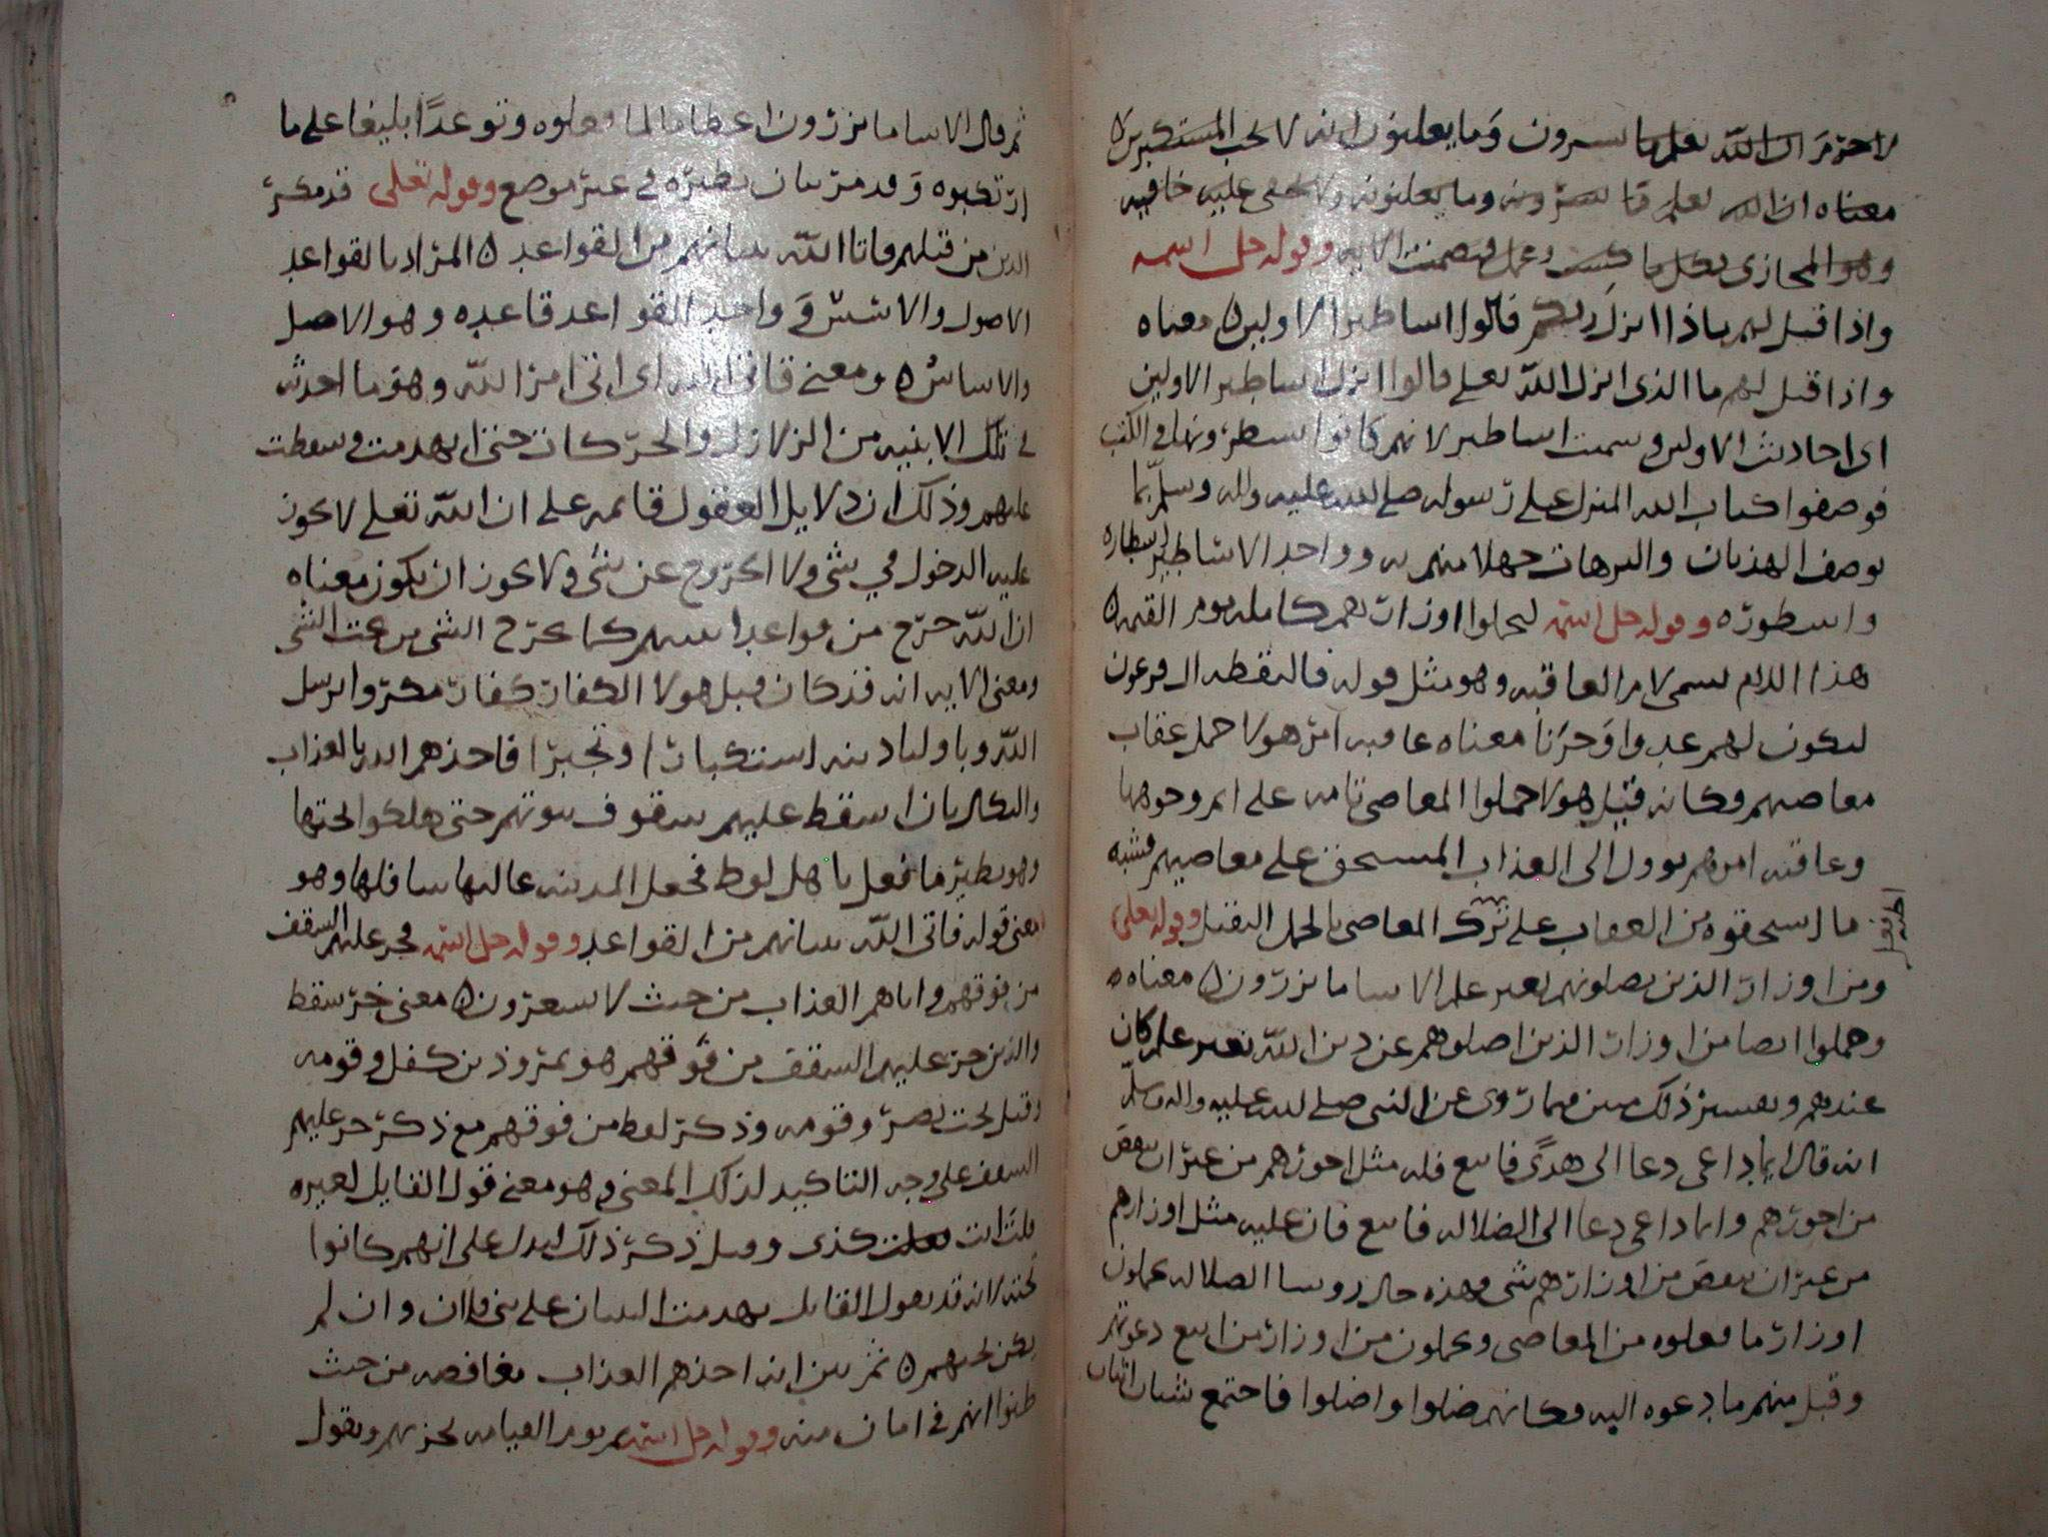 لا جرم ان الله يعلم ما يسرون وما يعلنون انه لا يحب المستكبرين
معناه ان الله يعلم ما يسرونه وما يعلنونه ولا يخفى عليه خافيه
وهو المجازى بكل ما كسب وعمل الايه وقوله جل اسمه
واذا قيل لهم ماذا انزل ربكم قالوا اساطير الاولين معناه
واذا قيل لهم ما الذى انزل الله تعلى قالوا انزل اساطير الاولين
اى احاديث الاولين وسميت اساطير لانهم كانوا يسطرونها فى الكتب
فوصفوا كتاب الله المنزل على رسوله صلى الله عليه واله وسلم بما
يوصف الهذيان والترهات جهلا منهم به وواحد الاساطير اسطاره
واسطوره وقوله جل اسمه ليحملوا اوزارهم كامله يوم القيمه
هذا اللام يسمى لام العاقبه وهو مثل قوله فالتقطه ال فرعون
ليكون لهم عدوا وحزنا معناه عاقبه امر هولا حمل عقاب
معاصيهم وكانه قيل هولا حملوا المعاصى تامه على اتم وجوهها
وعاقبه امرهم يوول الى العذاب المستحق على معاصيهم فشبه
ما استحقوه من العقاب على ترك المعاصى بالحمل الثقيل وقوله تعلى
ومن اوزار الذين يضلونهم بغير علم الا سا ما يزرون معناه
وحملوا ايضا من اوزار الذين اضلوهم عن دين الله بغير علم كان
عندهم وتفسير ذلك مبين فيما روى عن النبى صلى الله عليه واله وسلم
انه قال ايما داعى دعا الى هدًى فاتبع فله مثل اجورهم من غير ان ينقص
من اجورهم وايما داعى دعا الى الضلاله فاتبع فان عليه مثل اوزارهم
من غير ان ينقص من اوزارهم شى وهذه حال روسا الضلاله يحملون
اوزار ما فعلوه من المعاصى ويحملون من اوزار من اتبع دعوتهم
وقبل منهم ما دعوه اليه فكانهم ضلوا واضلوا فاجتمع
ثم قال الا سا ما يزرون اعظاما لما فعلوه وتوعدًا بليغا على ما
ارتكبوه وقد مر بيان نظيره فى غير موضع وقوله تعلى قد مكر
الذين من قبلهم فاتا الله بنيانهم من القواعد المراد بالقواعد
الاصول والاسس وواحد القواعد قاعده وهو الاصل
والاساس ومعنى فاتى الله اى اتى امر الله وهو ما احدث
فى تلك الابنيه من الزلازل والحركات حتى انهدمت وسقطت
عليهم وذلك ان دلايل العقول قايمه على ان الله تعلى لا يجوز
عليه الدخول فى شى ولا الخروج عن شى ولا يجوز ان يكون معناه
ان الله خرج من قواعد بنيانهم كما يخرج الشى من تحت الشى
ومعنى الايه انه قد كان قبل هولا الكفار كفار مكروا برسل
الله وباوليا دينه استكبارا وتجبرا فاخذهم الله بالعذاب
والنكال بان اسقط عليهم سقوف بيوتهم حتى هلكوا تحتها
وهو نظير ما فعل باهل لوط فجعل المدينه عاليها سافلها وهو
معنى قوله فاتى الله بنيانهم من القواعد وقوله جل اسمه فخر عليهم السقف
من فوقهم واتاهم العذاب من حيث لا يشعرون معنى خر سقط
والذين خر عليهم السقف من فوقهم هو نمروذ بن كنعان وقومه
وقيل بخت نصر وقومه وذكر لفظ من فوقهم مع ذكر خر عليهم
السقف على وجه التاكيد لذلك المعنى وهو معنى قول القايل لغيره
قلت انت فعلت كذى وقيل ذكر ذلك ليدل على انهم كانوا
تحته لانه قد يقول القايل تهدمت البنيان على بنى فلان وان لم
يكن تحتهم ثم بين انه اخذهم العذاب مغافصه من حيث
ظنوا انهم فى امان منه وقوله جل اسمه ثم يوم القيامه يخزيهم ويقول